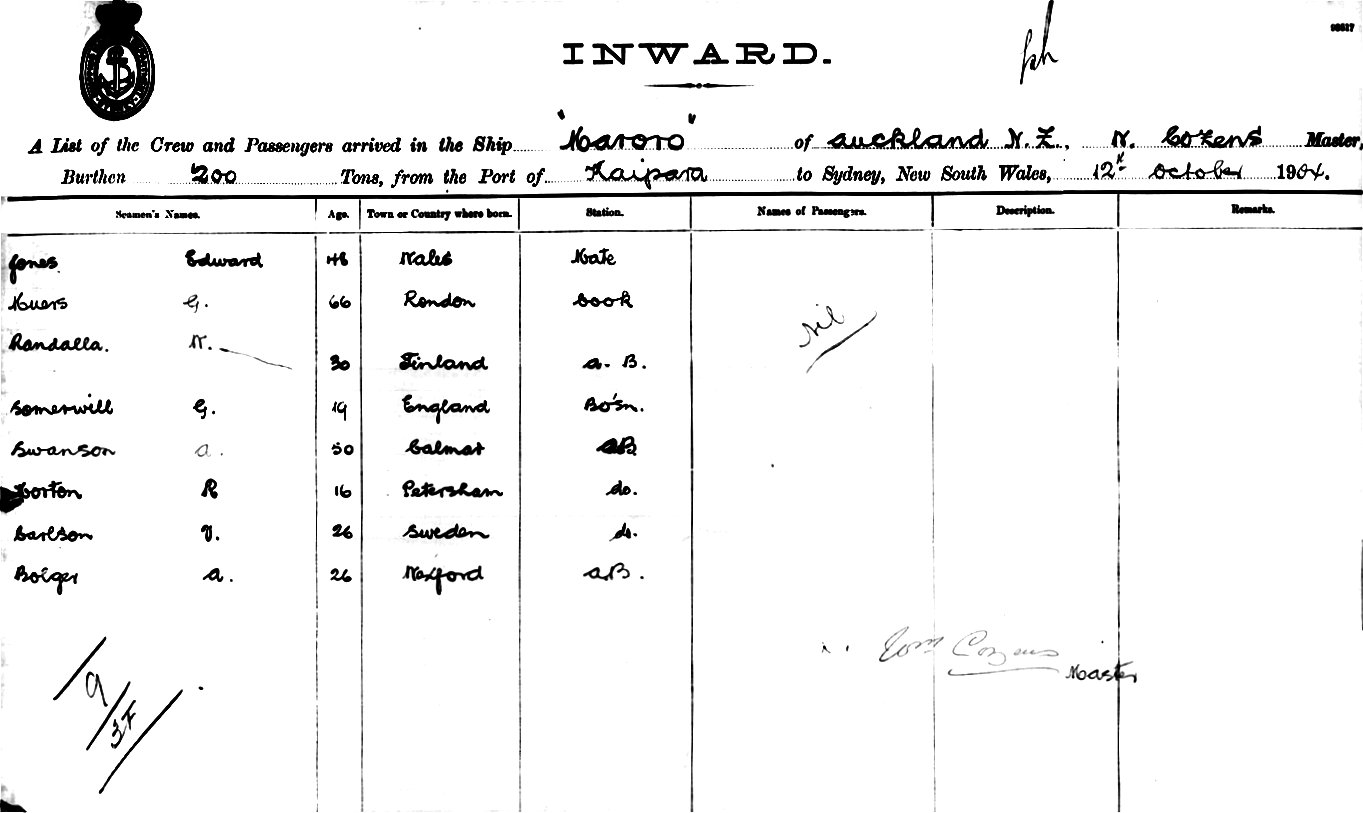 INWARD.
A List of the Crew and Passengers arrived in the Ship "Karoro" of Auckland N.Z., W. Cozens Master,
Burthen 200 Tons, from the Port of Kaipara to Sydney, New South Wales, 12th October 1904.
Seamen's Names. Age. Town or Country where born. Station. Names of Passengers. Description. Remarks.
Jones Edward 48 Wales Mate
G. 66 London Cook
Nil
Randalla. W.
30 Finland A.B.
Somerwill G. 19 England Bo'sn.
Swanson A. 50 Calmar AB
Horton R 16 Petersham do.
Carlson V. 26 Sweden do.
Bolger A. 26 Wexford A.B.
Wm Cozens
Master
9
3F